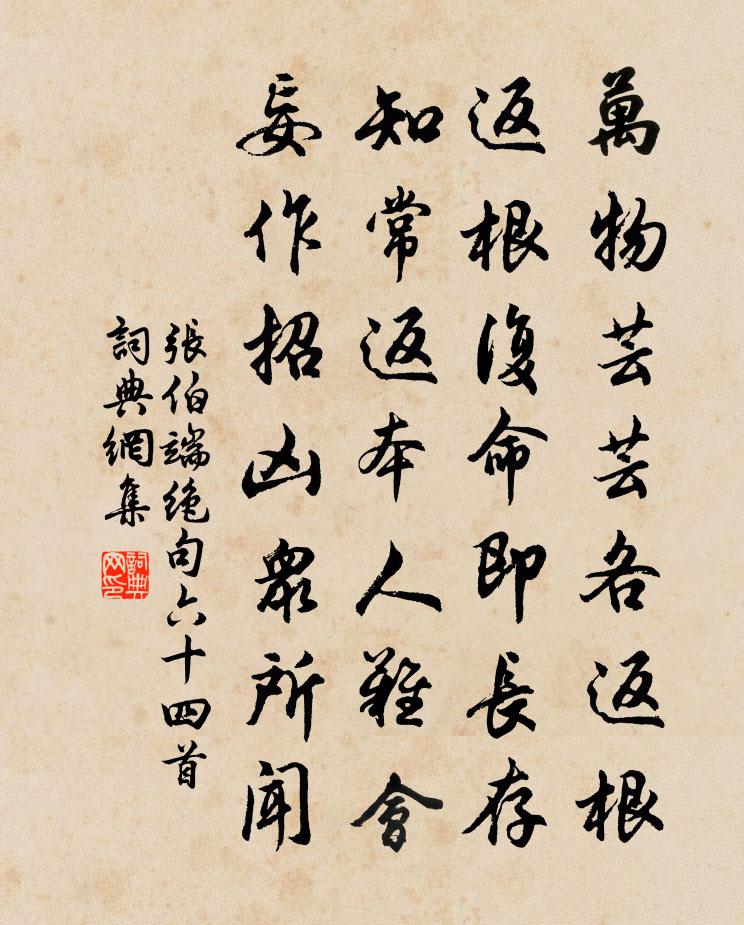 萬物芸芸各返根
返根復命即長存
知常返本人難會
妄作招凶眾所聞
張伯端絶句六十四首
詞典網集
詞典网印